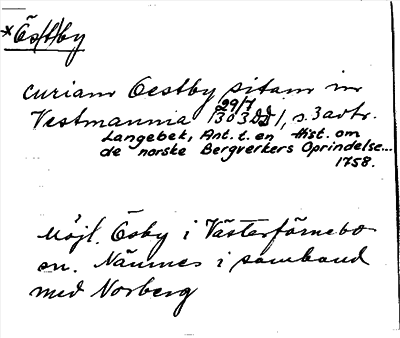 *Ös/t/by
curiam Oestby sitam in
Vestmannia 29/7 1303 DD 1, s. 3 avtr.
Langebek, Ant. t. en Hist. om
de norske Bergverkers Oprindelse...
1758.
Möjl. Ösby i Västerfärnebo
sn. Nämnes i samband
med Norberg